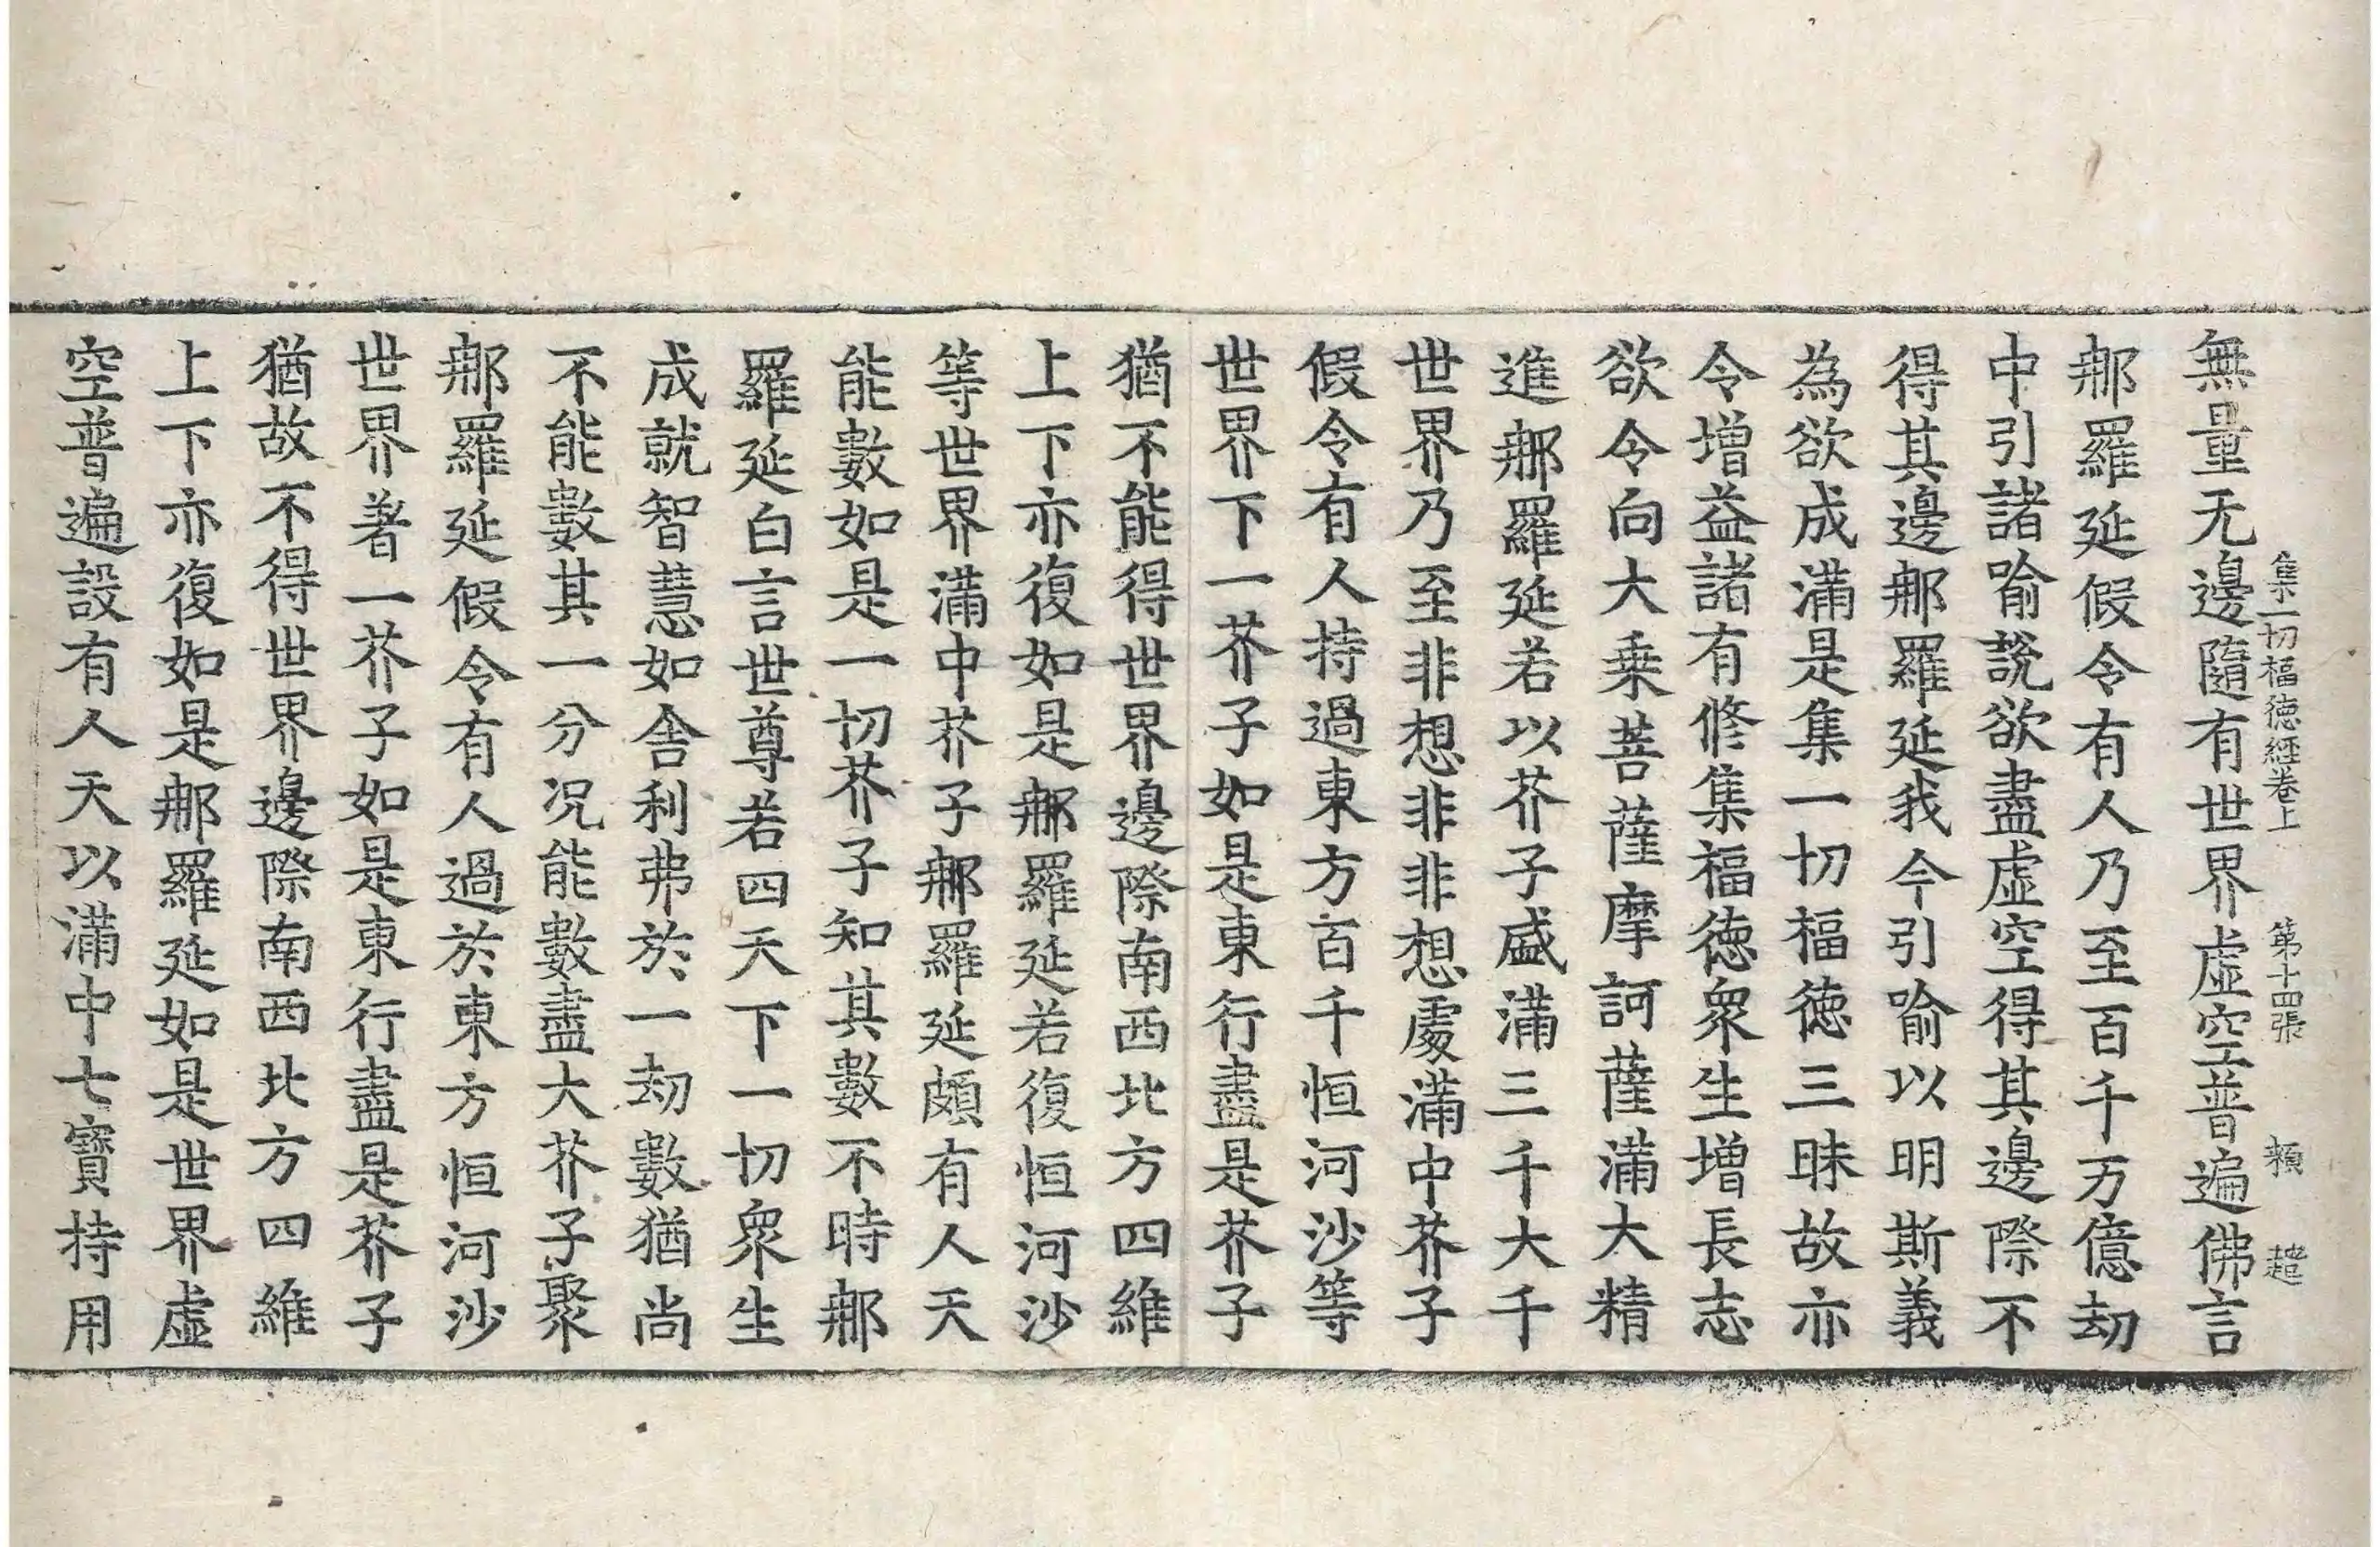 集一切福徳經卷上 第十四張 頼 趂
無量无邊隨有世界虛空普遍佛言
那羅延假令有人乃至百千万億劫
中引諸喻說欲盡虛空得其邊際不
得其邊那羅延我今引喻以明斯義
為欲成滿是集一切福徳三昧故亦
令增益諸有修集福徳衆生增長志
欲令向大乗菩薩摩訶薩滿大精
進那羅延若以芥子盛滿三千大千
世界乃至非想非非想處滿中芥子
假令有人持過東方百千恒河沙等
世界下一芥子如是東行盡是芥子
猶不能得世界邊際南西北方四維
上下亦復如是那羅延若復恒河沙
等世界滿中芥子那羅延頗有人天
能數如是一切芥子知其數不時那
羅延白言世尊若四天下一切衆生
成就智慧如舍利弗於一劫數猶尚
不能數其一分况能數盡大芥子聚
那羅延假令有人過於東方恒河沙
世界著一芥子如是東行盡是芥子
猶故不得世界邊際南西北方四維
上下亦復如是那羅延如是世界虛
空普遍設有人天以滿中七寶持用